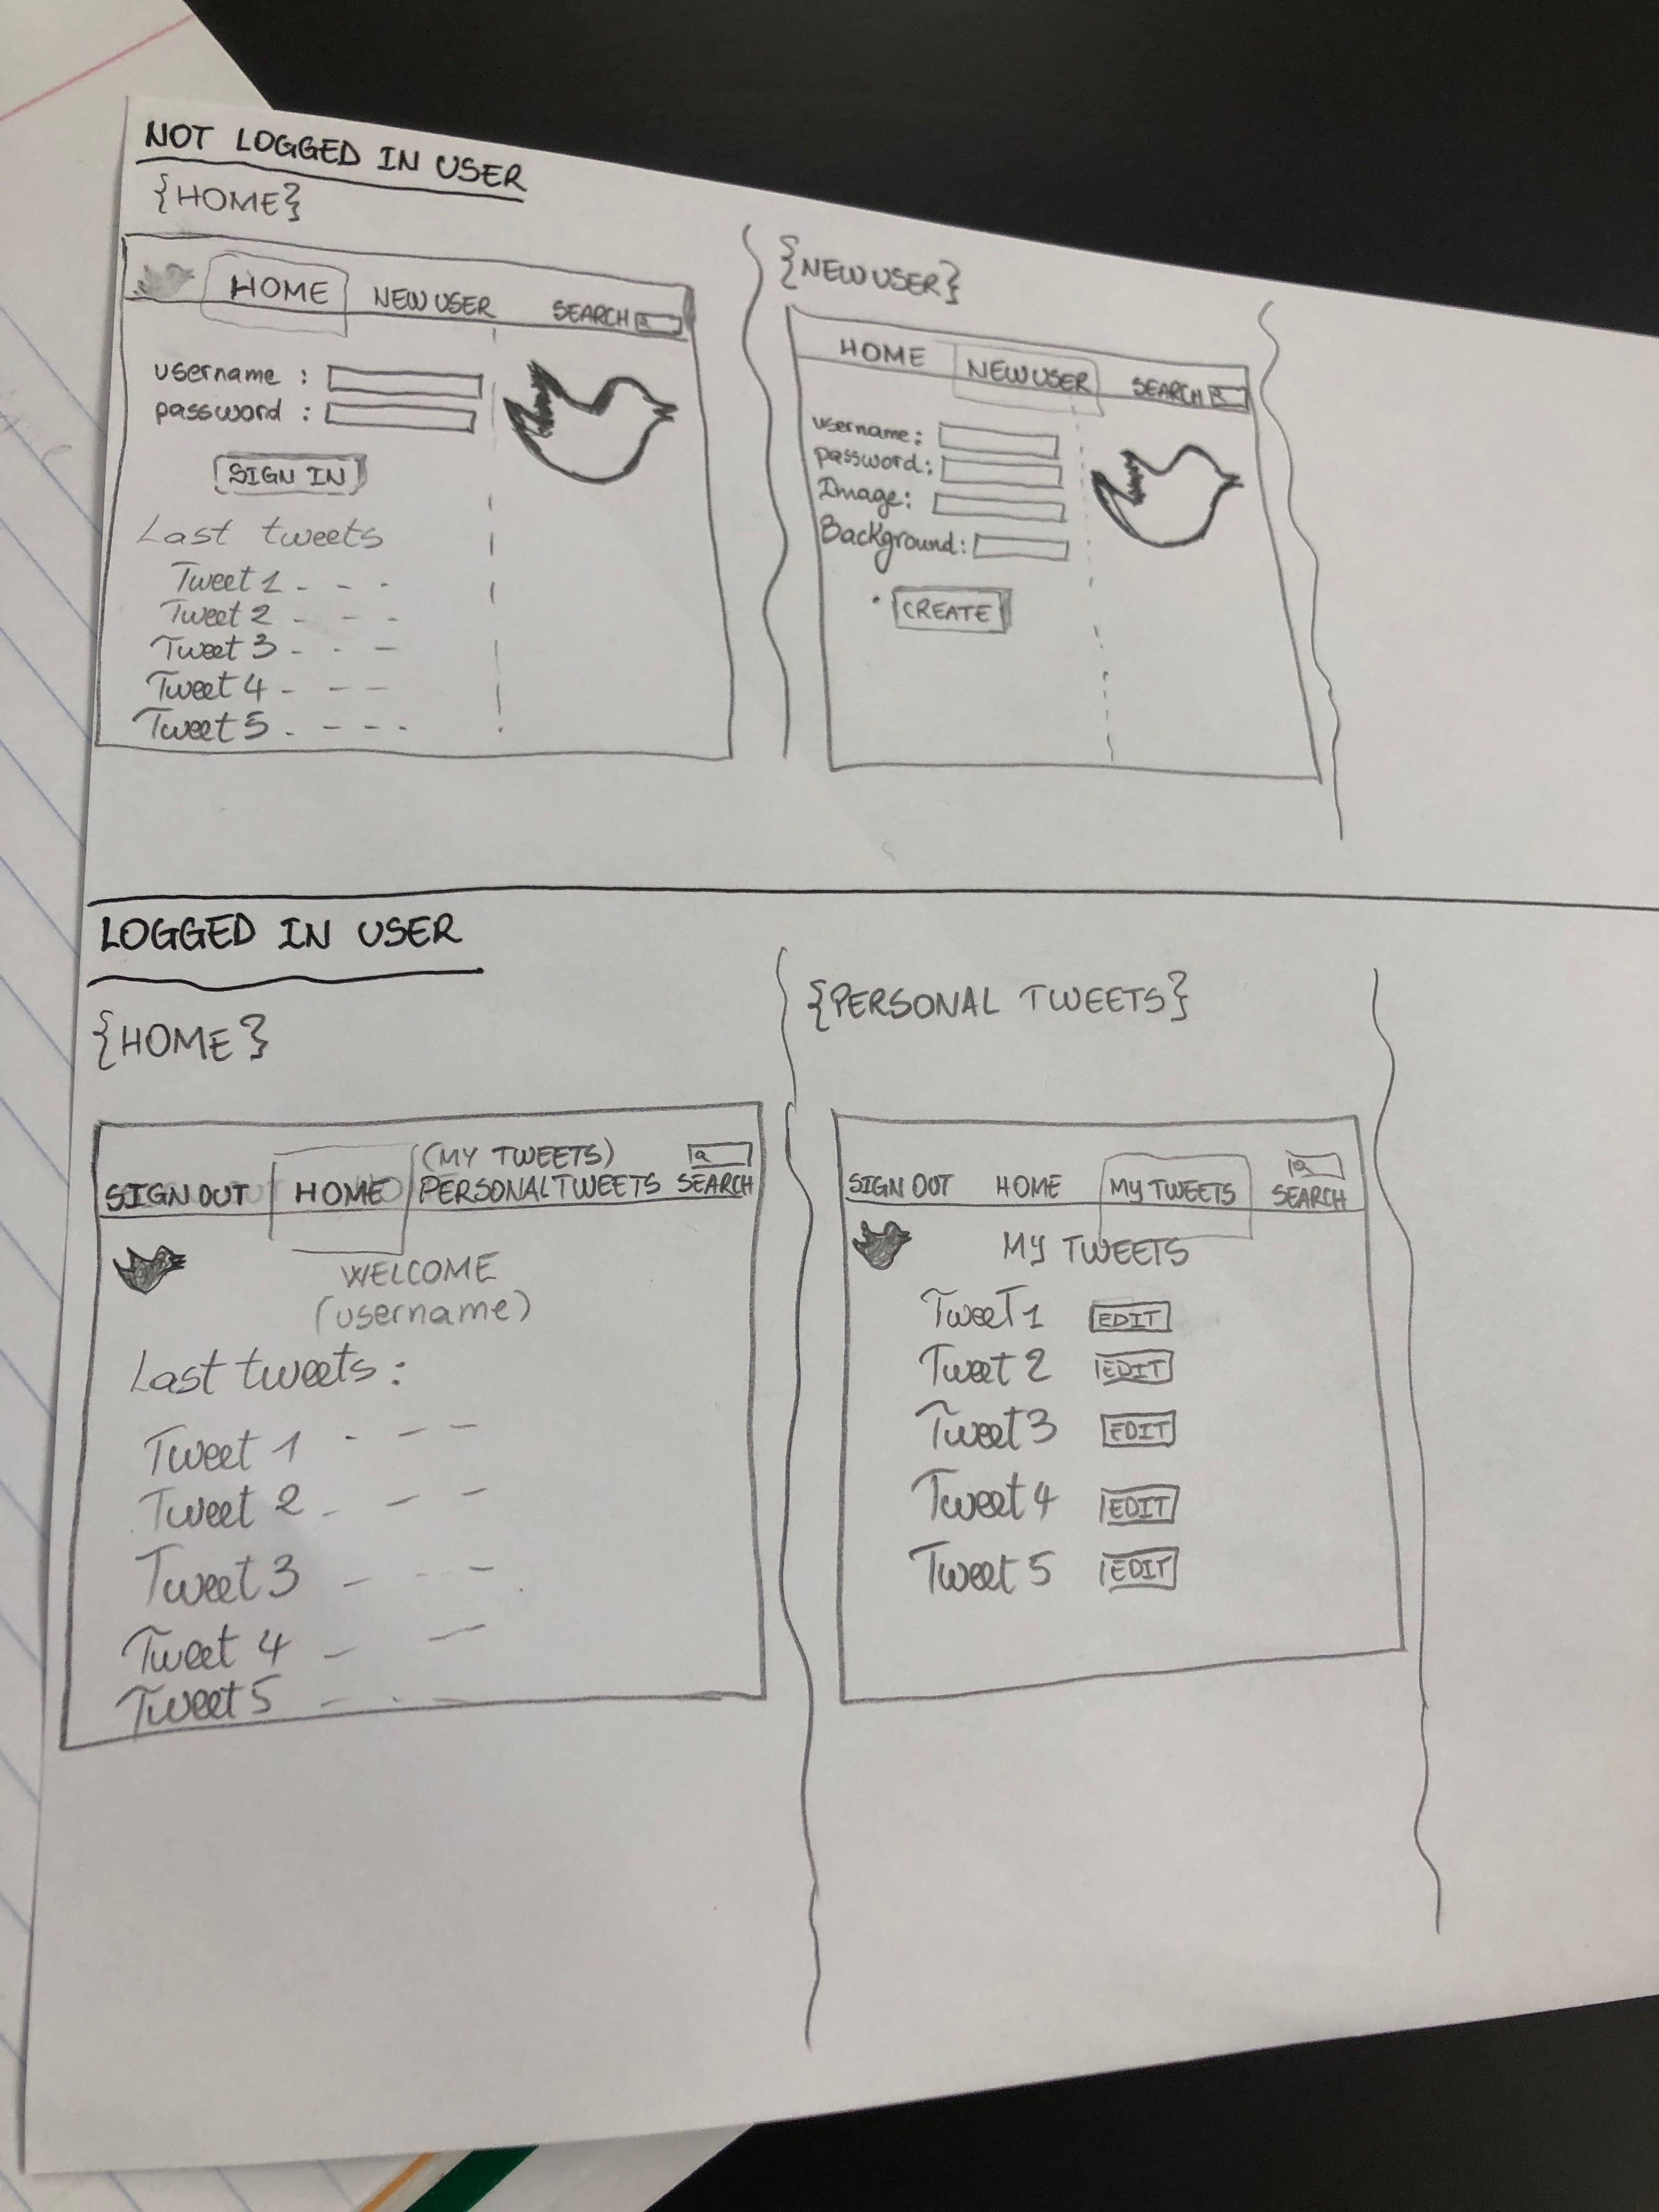 NOT LOGGED IN USER
{HOME}
HOME NEW USER SEARCH
username :
password :
SIGN IN
Last tweets
Tweet 1 - - -
Tweet 2 - - -
Tweet 3 - - -
Tweet 4 - - -
Tweet 5 - - - -
{NEW USER}
HOME NEW USER SEARCH
username :
password :
Image :
Background :
CREATE
LOGGED IN USER
{HOME}
(MY TWEETS)
SIGN OUT HOME PERSONAL TWEETS SEARCH
WELCOME
(username)
Last tweets :
Tweet 1 - - -
Tweet 2 - - -
Tweet 3 - - -
Tweet 4 - -
Tweet 5 - - -
{PERSONAL TWEETS}
SIGN OUT HOME MY TWEETS SEARCH
MY TWEETS
Tweet 1 EDIT
Tweet 2 EDIT
Tweet 3 EDIT
Tweet 4 EDIT
Tweet 5 EDIT